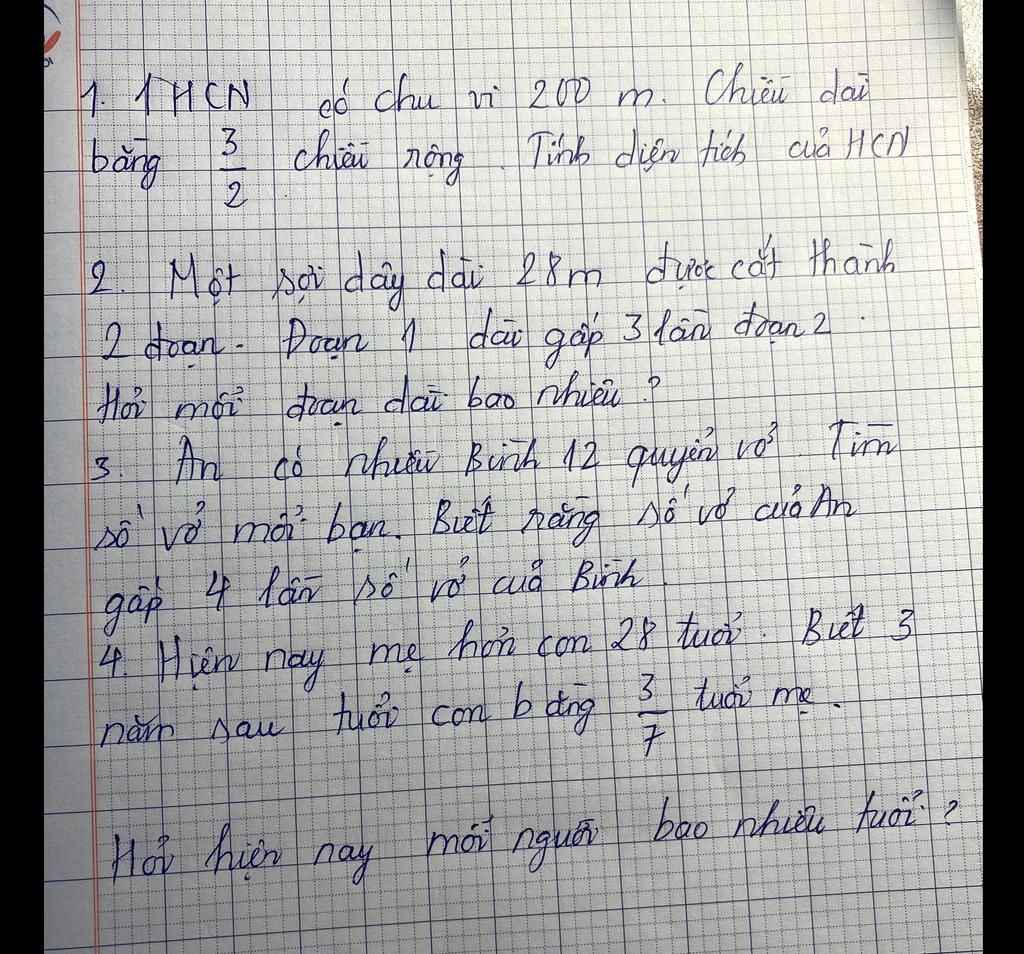 1. 1 HCN có chu vi 200 m. Chiều dài
bằng 3/2 chiều rộng. Tính diện tích của HCN
2. Một sợi dây dài 28m được cắt thành
2 đoạn. Đoạn 1 dài gấp 3 lần đoạn 2.
Hỏi mỗi đoạn dài bao nhiêu?
3. An có nhiều Bình 12 quyển vở. Tìm
số vở mỗi bạn. Biết rằng số vở của An
gấp 4 lần số vở của Bình
4. Hiện nay mẹ hơn con 28 tuổi. Biết 3
năm sau tuổi con bằng 3/7 tuổi mẹ.
Hỏi hiện nay mỗi người bao nhiêu tuổi?